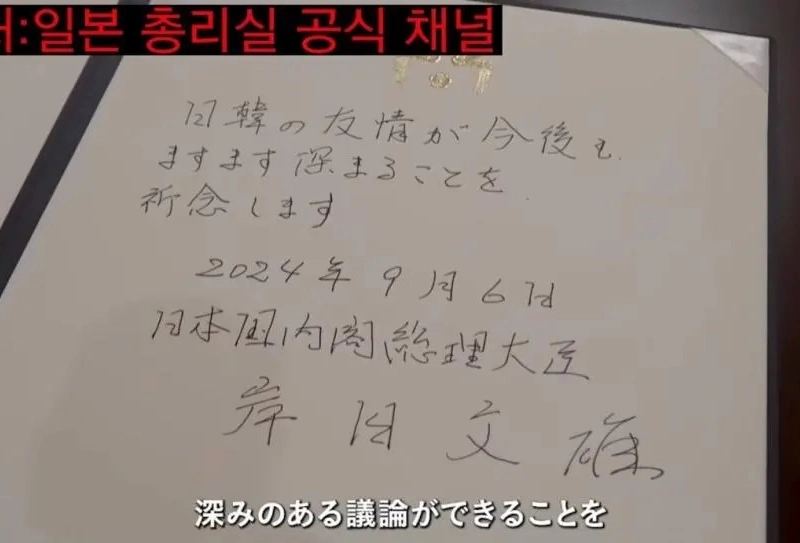 처:일본 총리실 공식 채널
日韓の友情が今後も
ますます深まることを
祈念します
2024年9月6日
日本国内閣総理大臣
岸田文雄
深みのある議論ができることを